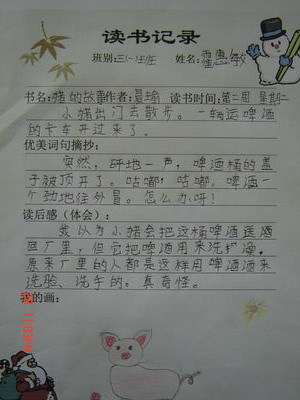 读书记录
班别:三(一)班 姓名:霍惠敏
书名:猪的故事 作者:晏瑜 读书时间:第二周 星期二
小猪出门去散步。一辆运啤酒
的卡车开过来了。
优美词句摘抄:
突然,砰地一声,啤酒桶的盖
子被顶开了。咕嘟,咕嘟。啤酒一
个劲地往外冒。怎么办呀!
读后感(体会):
我以为小猪会把这桶啤酒送
回厂里,但它把啤酒用来洗
原来厂里的人都是这样用啤酒来
洗脸、洗手的。真奇怪。
我的画: